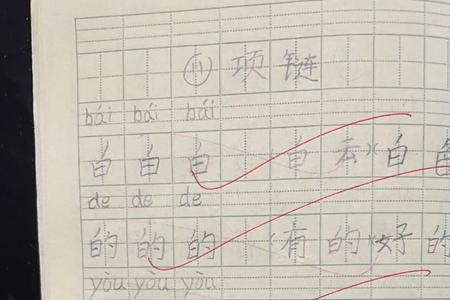 ⑪ 项链
bái bái bái
白 白 白 (白云)(白
de de de
的 的 的 (有的)(好的
yòu yòu yòu